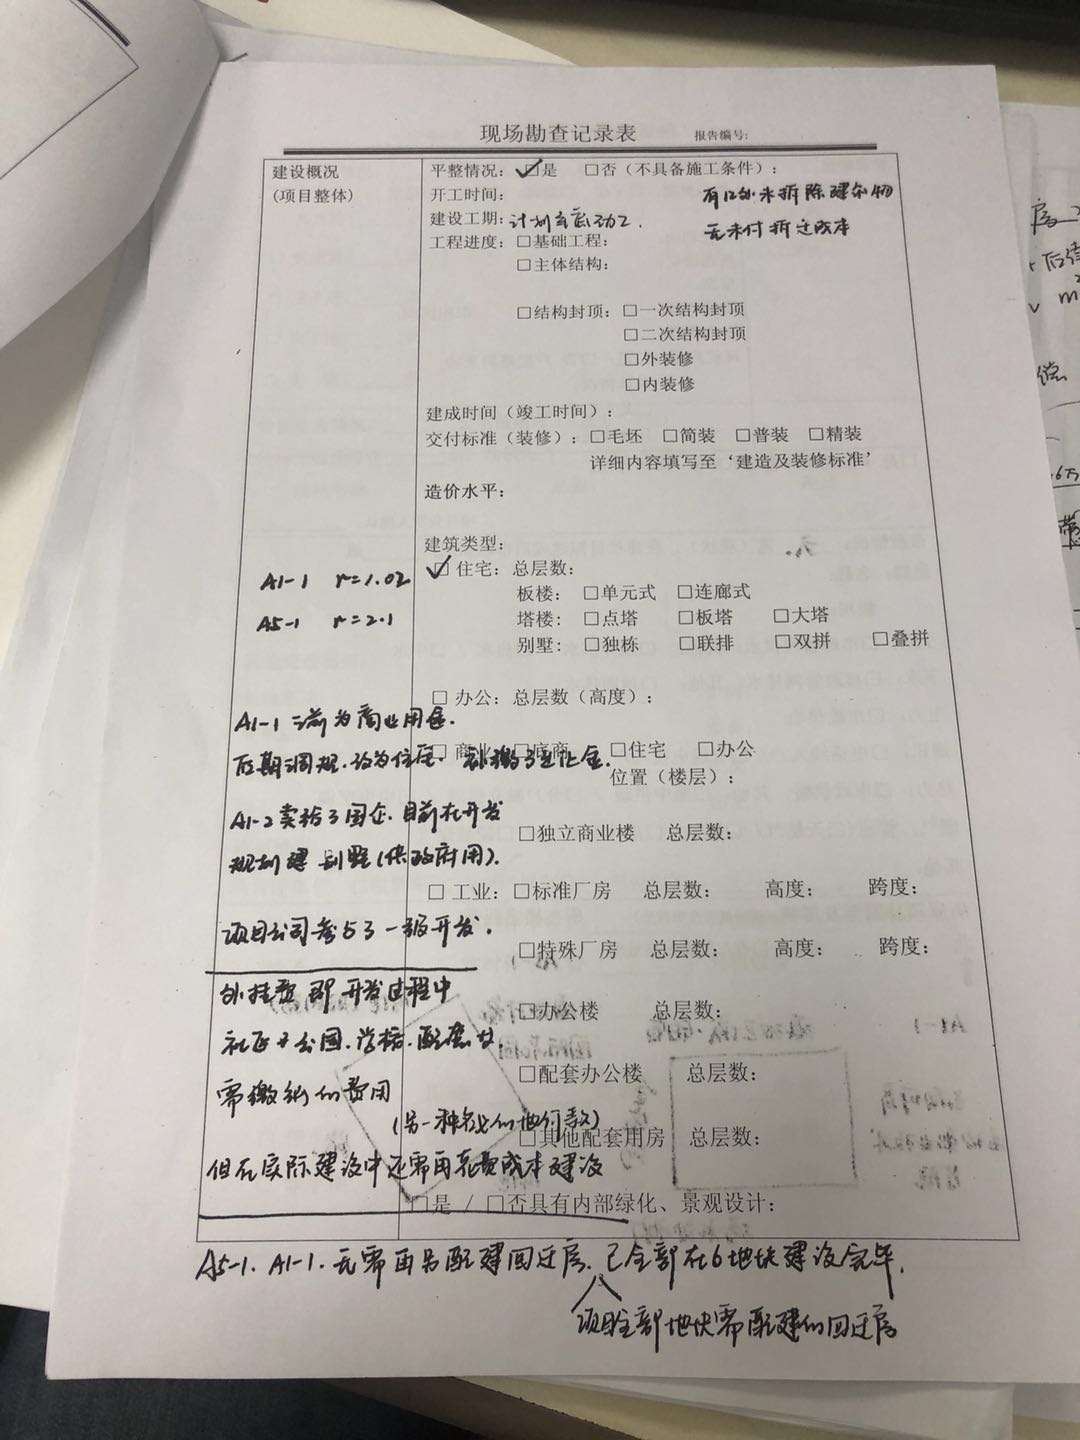 现场勘查记录表 报告编号:
建设概况
(项目整体)
平整情况: ☑是 □否（不具备施工条件）:
开工时间: 有12处未拆除建筑物
建设工期: 计划年底动工. 无未付拆迁成本
工程进度: □基础工程:
□主体结构:
□结构封顶: □一次结构封顶
□二次结构封顶
□外装修
□内装修
建成时间（竣工时间）:
交付标准（装修）: □毛坯 □简装 □普装 □精装
详细内容填写至‘建造及装修标准’
造价水平:
建筑类型:
☑住宅: 总层数:
A1-1 r=1.02
板楼: □单元式 □连廊式
A5-1 r=2.1
塔楼: □点塔 □板塔 □大塔
别墅: □独栋 □联排 □双拼 □叠拼
□ 办公: 总层数（高度）:
A1-1 前为商业用途.
□ 商业: □底商 □住宅 □办公
后期调规.设为住宅. 补缴了出让金.
位置（楼层）:
A1-2卖给了国企.目前在开发
□独立商业楼 总层数:
规划建别墅(供政府用).
□ 工业: □标准厂房 总层数: 高度: 跨度:
项目公司参与了一级开发.
□特殊厂房 总层数: 高度: 跨度:
外挂费 即 开发过程中
□办公楼 总层数:
公园.学校.配
□配套办公楼 总层数:
需缴纳的费用
(另一种名义的地价款)
□其他配套用房 总层数:
但在实际建设中还需再花费成本建设
□是 / □否具有内部绿化、景观设计:
A5-1. A1-1.无需再另配建回迁房.已全部在6地块建设完毕.
项目全部地块需配建的回迁房